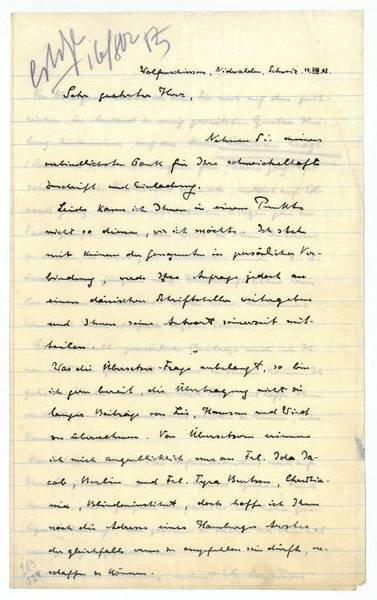 erl. 16/802 B
Wolfenschiessen, Nidwalden, Schweiz, 14.VIII.02
Sehr geehrter Herr,
Nehmen Sie meinen
verbindlichsten Dank für Ihre schmeichelhafte
Zuschrift und Einladung.
Leider kann ich Ihnen in einem Punkte
nicht so dienen, wie ich möchte. Ich stehe
mit keinem der Genannten in persönlicher Ver-
bindung, werde Ihre Anfrage jedoch an
einen dänischen Schriftsteller weitergeben
und Ihnen seine Antwort seinerzeit mit-
teilen.
Was die Übersetzer-Frage anbelangt, so bin
ich gern bereit, die Übertragung nicht zu
langer Beiträge von Lie, Hamsun und Wied
zu übernehmen. Von Übersetzern erinnere
ich mich augenblicklich nur an Frl. Ida Ja-
cob, Berlin und Frl. Tyra Bentsen, Christia-
nia, Blindeninstitut, doch hoffe ich Ihnen
noch die Adresse eines Hamburger Arztes
der gleichfalls warm zu empfehlen sein dürfte, ver-
schaffen zu können.